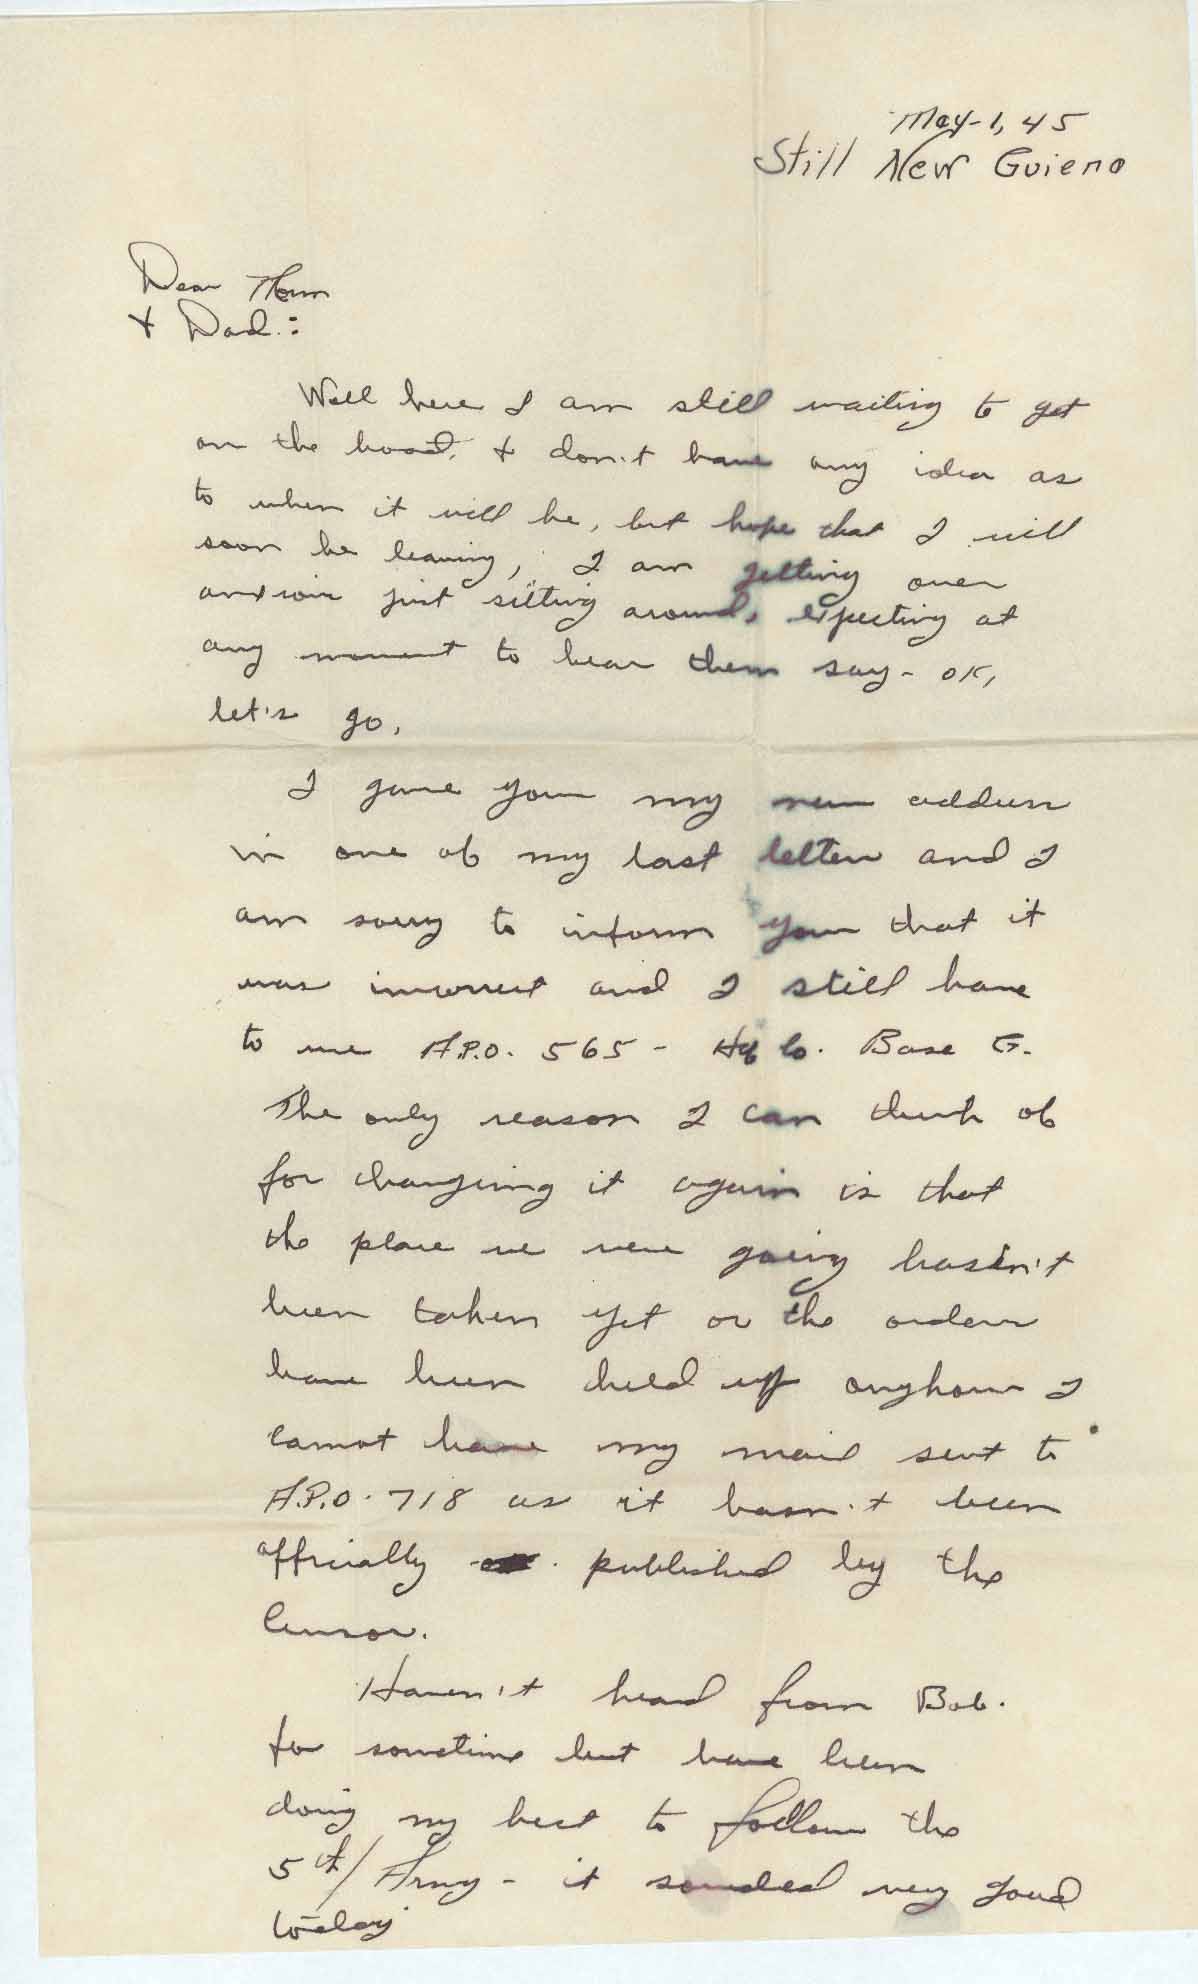 May-1, 45
Still New Guiena
Dear Mom
+ Dad:
Well here I am still waiting to get
on the boat, + don't have any idea as
to when it will be, but hope that I will
soon be leaving, I am getting over
anxious just sitting around, expecting at
any moment to hear them say - OK,
let's go.
I gave you my new address
in one of my last letters and I
am sorry to inform you that it
was incorrect and I still have
to use A.P.O. 565 - Hq Co. Base G.
The only reason I can think of
for changeing it again is that
the place we were going hasn't
been taken yet or the orders
have been held up anyhow I
cannot have my mail sent to
A.P.O. 718 as it hasn't been
officially published by the
Censor.
Haven't heard from Bob.
for sometime but have been
doing my best to follow the
5th/ Army - it sounded very good
today